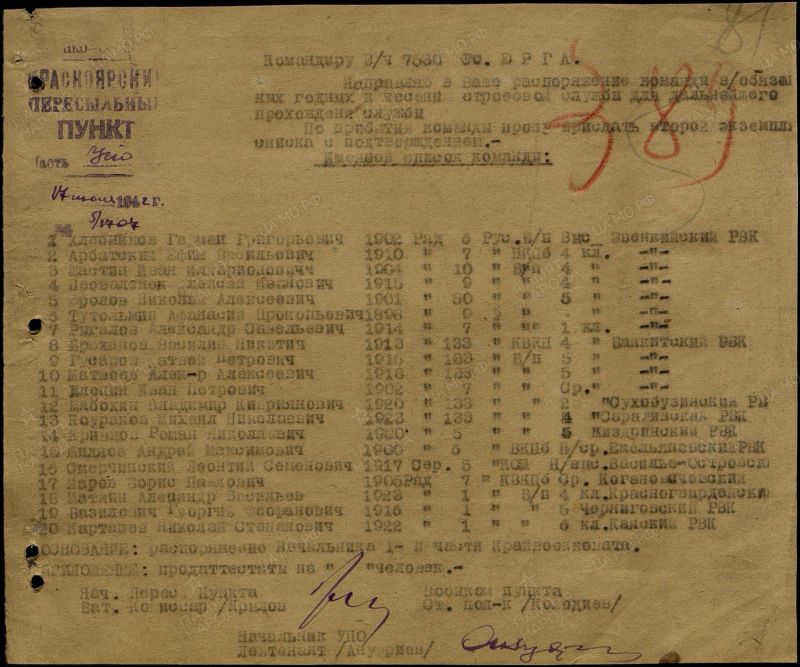 НКО-
КРАСНОЯРСКИЙ
ПЕРЕСЫЛЬНЫЙ
ПУНКТ
Часть УПО
17 июня 1942 г.
№ 5/1707
Командиру В/ч 7336 Ст. Ю Р Г А.
Направляю в Ваше распоряжение команды в/обязан
ных годных к несению строевой службы для дальнейшего
прохождения службы
По прибытии команды прошу прислать второй экземпл
списка с подтверждением.-
Именной список команды:
1 Герман Григорьевич 1902 Ряд 6 Рус. Б/п Выс Эвенкийский РВК
2 Арбатский Ефим Васильевич 1910 " 7 " ВКПб 4 кл. -"-
3 Шастин Иван Илларионович 1904 " 10 " Б/п 4 " -"-
4 Алексей Иванович 1915 " 9 " " 4 " -"-
5 Фролов Николай Алексеевич 1901 " 50 " " 5 " -"-
6 Тутолмин Афанасий Прокопьевич 1898 " 9 " -"-
7 Рыгалов Александр Савельевич 1914 " 7 " " 1 кл. -"-
8 Брюханов Василий Никитич 1913 " 133 " КВКП 4 " Байкитский РВК
9 Гусаров Матвей Петрович 1915 " 133 " Б/п 5 " -"-
10 Матвеев Алек-р Алексеевич 1918 " 133 " " 5 " -"-
11 Хлепин Иван Петрович 1902 " 7 " " Ср." -"-
12 Владимир Киприянович 1920 " 133 " " 2 "Сухобузимский РВ
13 Михаил Николаевич 1923 " 133 " " 4 "Саралинский РВК
14 Кривцов Роман Николаевич 1900 " 5 " " 5 Жиздринский РВК
15 Андрей Максимович 1906 " 6 " ВКПб Н/ср. Емельяновский РВК
16 Смерчинский Леонтий Семенович 1917 Сер. 5 "КСМ Н/выс. Василье-Островско
17 Маров Борис Павлович 1905 Ряд 7 " КВКПб Ср. Когановичевский
18 Маткин Алесандр Васильев 1923 " 1 " Б/п 4 кл. Красногвардейский
19 Базилевич Георгий Феофанович 1918 " 1 " " 5 Черниговский РВК
20 Карташев Николай Степанович 1922 " 1 " " 6 кл. Канский РВК
ОСНОВАНИЕ: распоряжение Начальника 1-й части Крайвоенкомата.
ПРИЛОЖЕНИЕ: продаттестаты на " "человек.-
Нач. Перес. Пункта Военком пункта
Бат. Комиссар /Крылов Ст. пол-к /Колодиев/
Начальник УПО
Лейтенант /Ануприев/